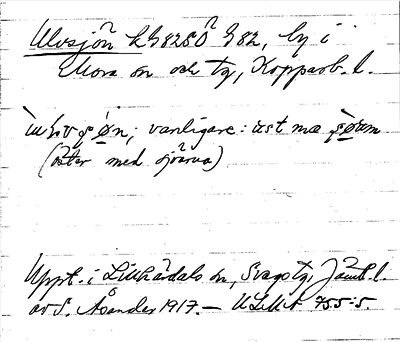 Ulvsjön L382SÖ 382, by i
Mora sn och tg, Kopparb. l.
vanligare: äst mæ
(öster med sjöarna)
Uppt. i Lillhärdals sn, Svegs tg, Jämtl. l.
av S. Åsander 1917. — ULMA 755:5.